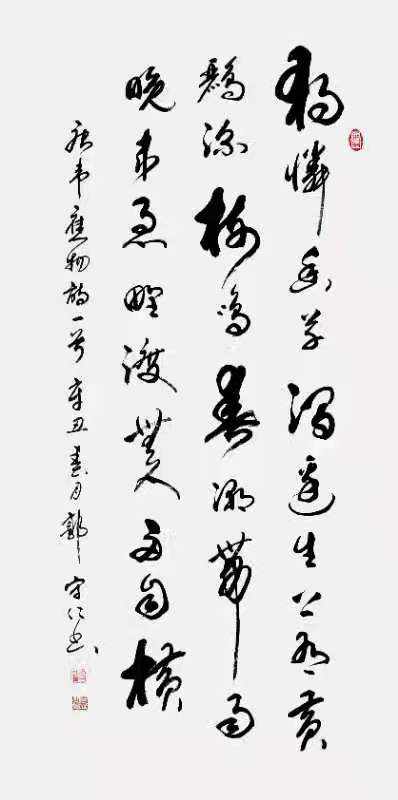 獨憐幽草澗邊生上有黃
鸝深樹鳴春潮帶雨
晚來急野渡無人舟自橫
唐韋應物詩一首辛丑春月郭守仁書